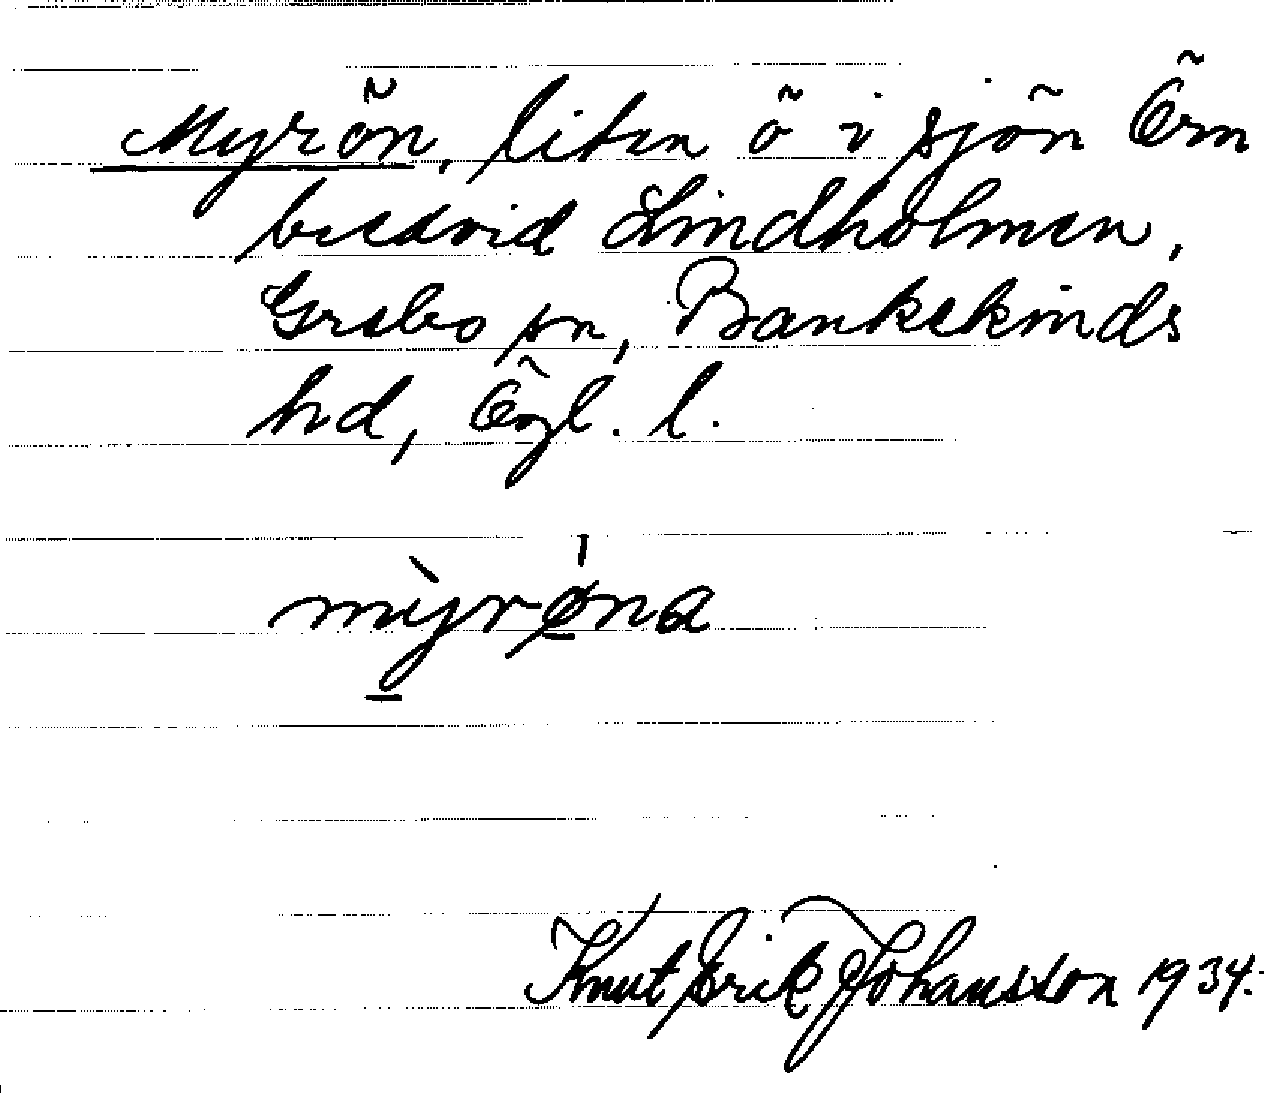 Myrön, liten ö i sjön Örn
bredvid Lindholmen,
Grebo sn, Bankekinds
hd, Ögl. l.
mỳrǿna
Knut Erik Johansson 1934.